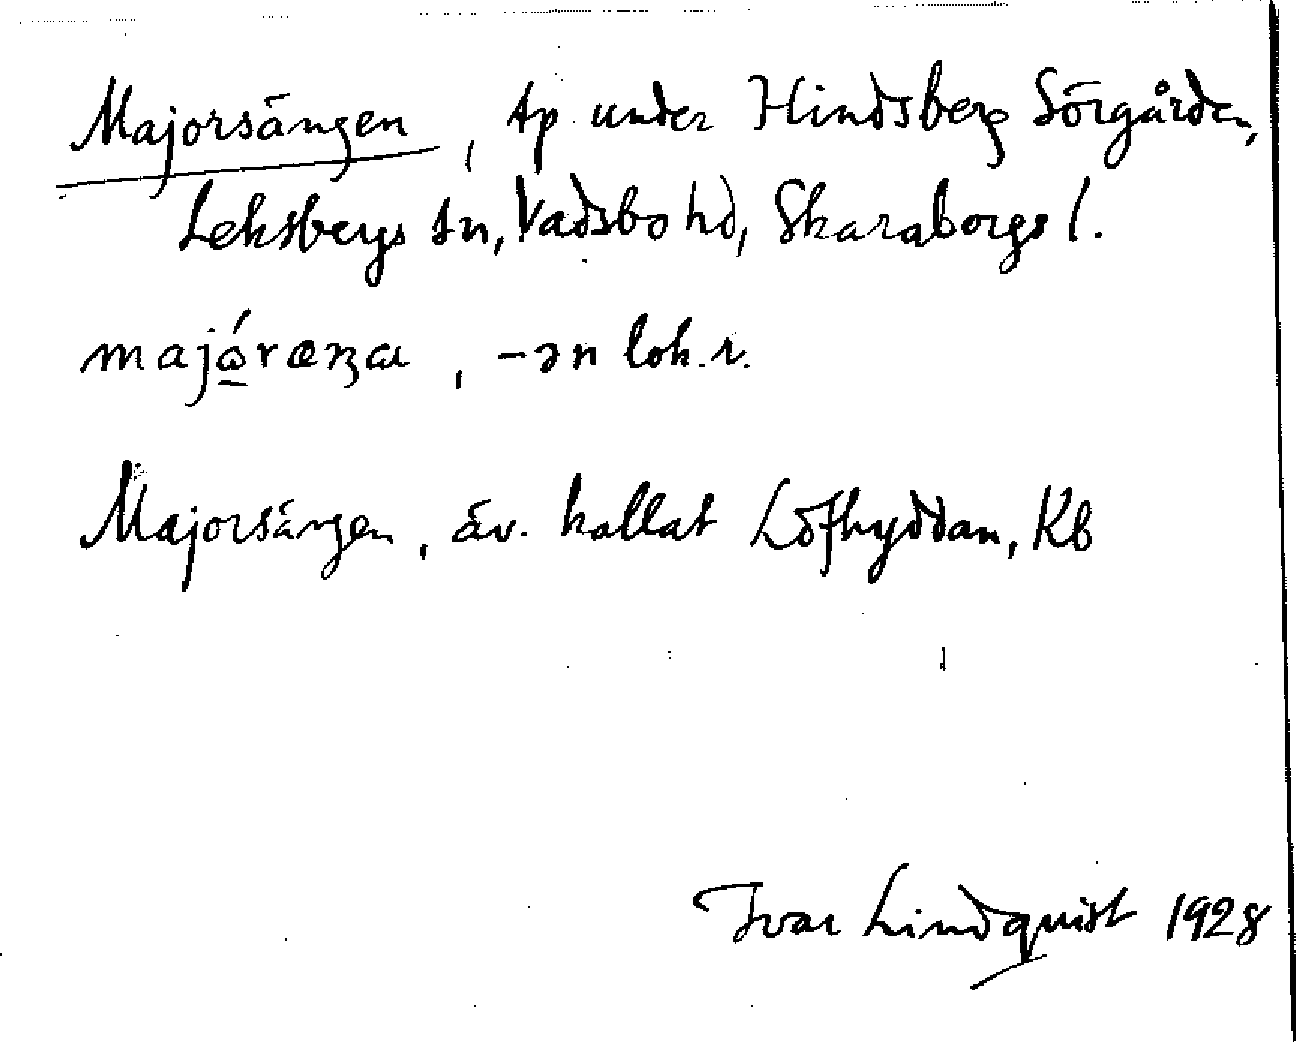 Majorsängen, tp under Hindsberg Sörgården,
Leksbergs sn, Vadsbo hd, Skaraborgs l.
majó̱ræŋa, -ən lok.r.
Majorsängen, äv. kallat Löfhyddan, Kb
Ivar Lindquist 1928